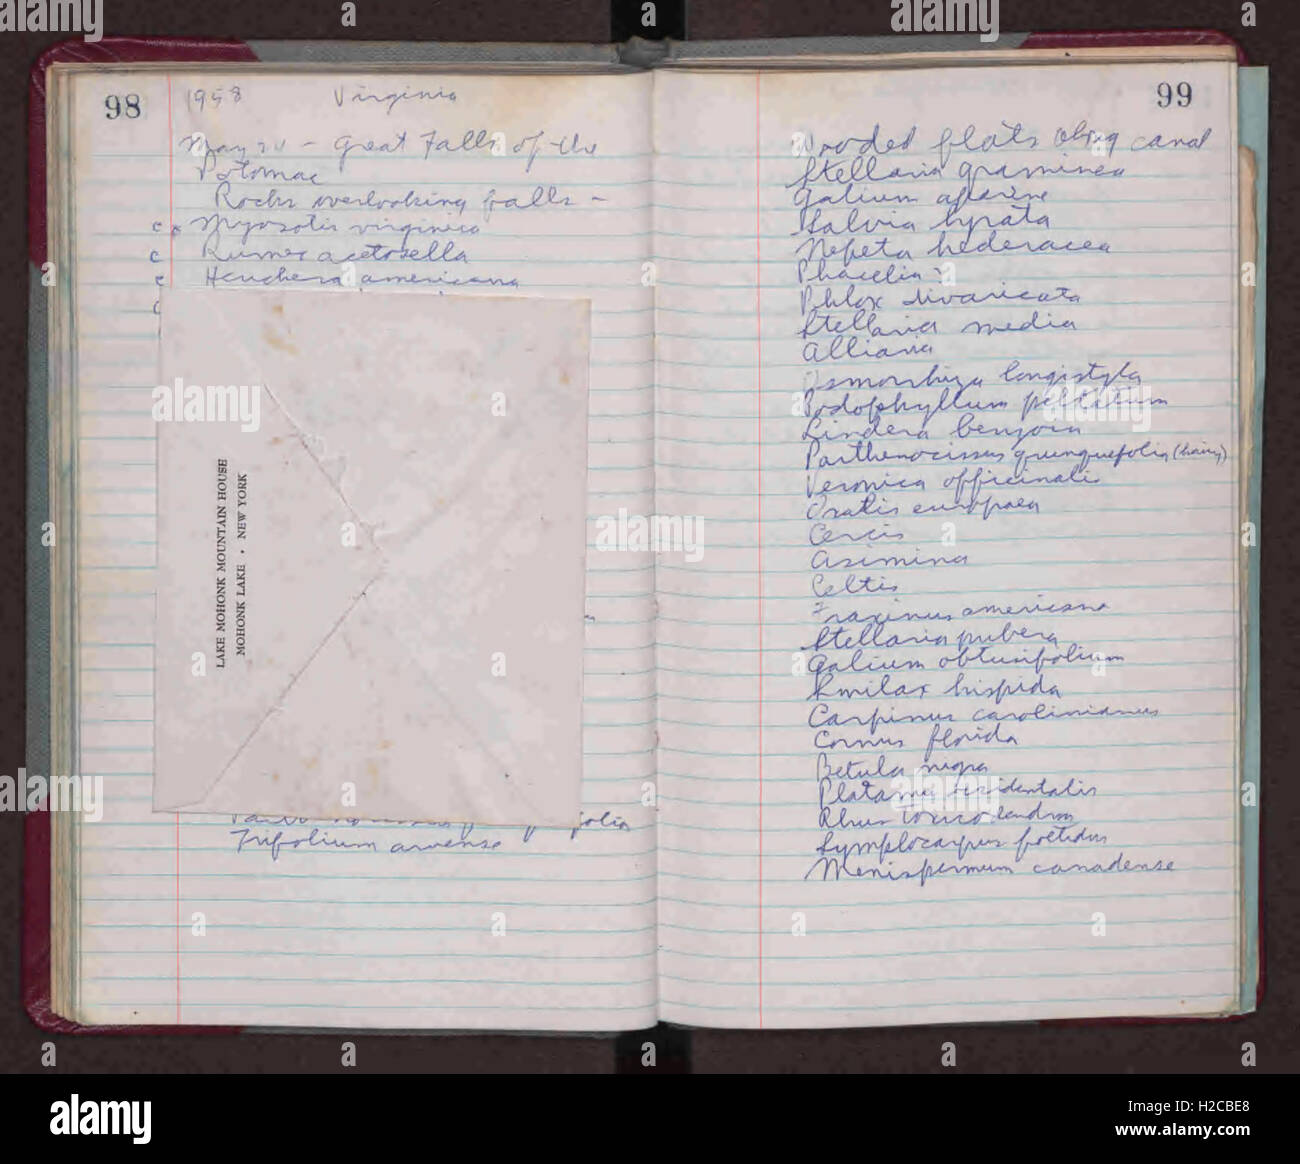 98
1958 Virginia
May 20 - Great Falls of the
Potomac
Rocks overlooking falls -
c x Myosotis virginica
c Rumex acetosella
c Heuchera americana
LAKE MOHONK MOUNTAIN HOUSE
MOHONK LAKE • NEW YORK
Trifolium arvense
99
Wooded flats along canal
Stellaria graminea
Galium aparine
Salvia lyrata
Nepeta hederacea
Phacelia
Phlox divaricata
Stellaria media
Alliaria
Osmorrhiza longistyla
Podophyllum peltatum
Lindera benzoin
Parthenocissus quinquefolia (hairy)
Veronica officinalis
Oxalis europaea
Cercis
Asimina
Celtis
Fraxinus americana
Stellaria pubera
Galium obtusifolium
Smilax hispida
Carpinus carolinianus
Cornus florida
Betula nigra
Platanus occidentalis
Rhus toxicodendron
Symplocarpus foetidus
Menispermum canadense
alamy
alamy
alamy
alamy
alamy
alamy
Image ID: H2CBE8
www.alamy.com